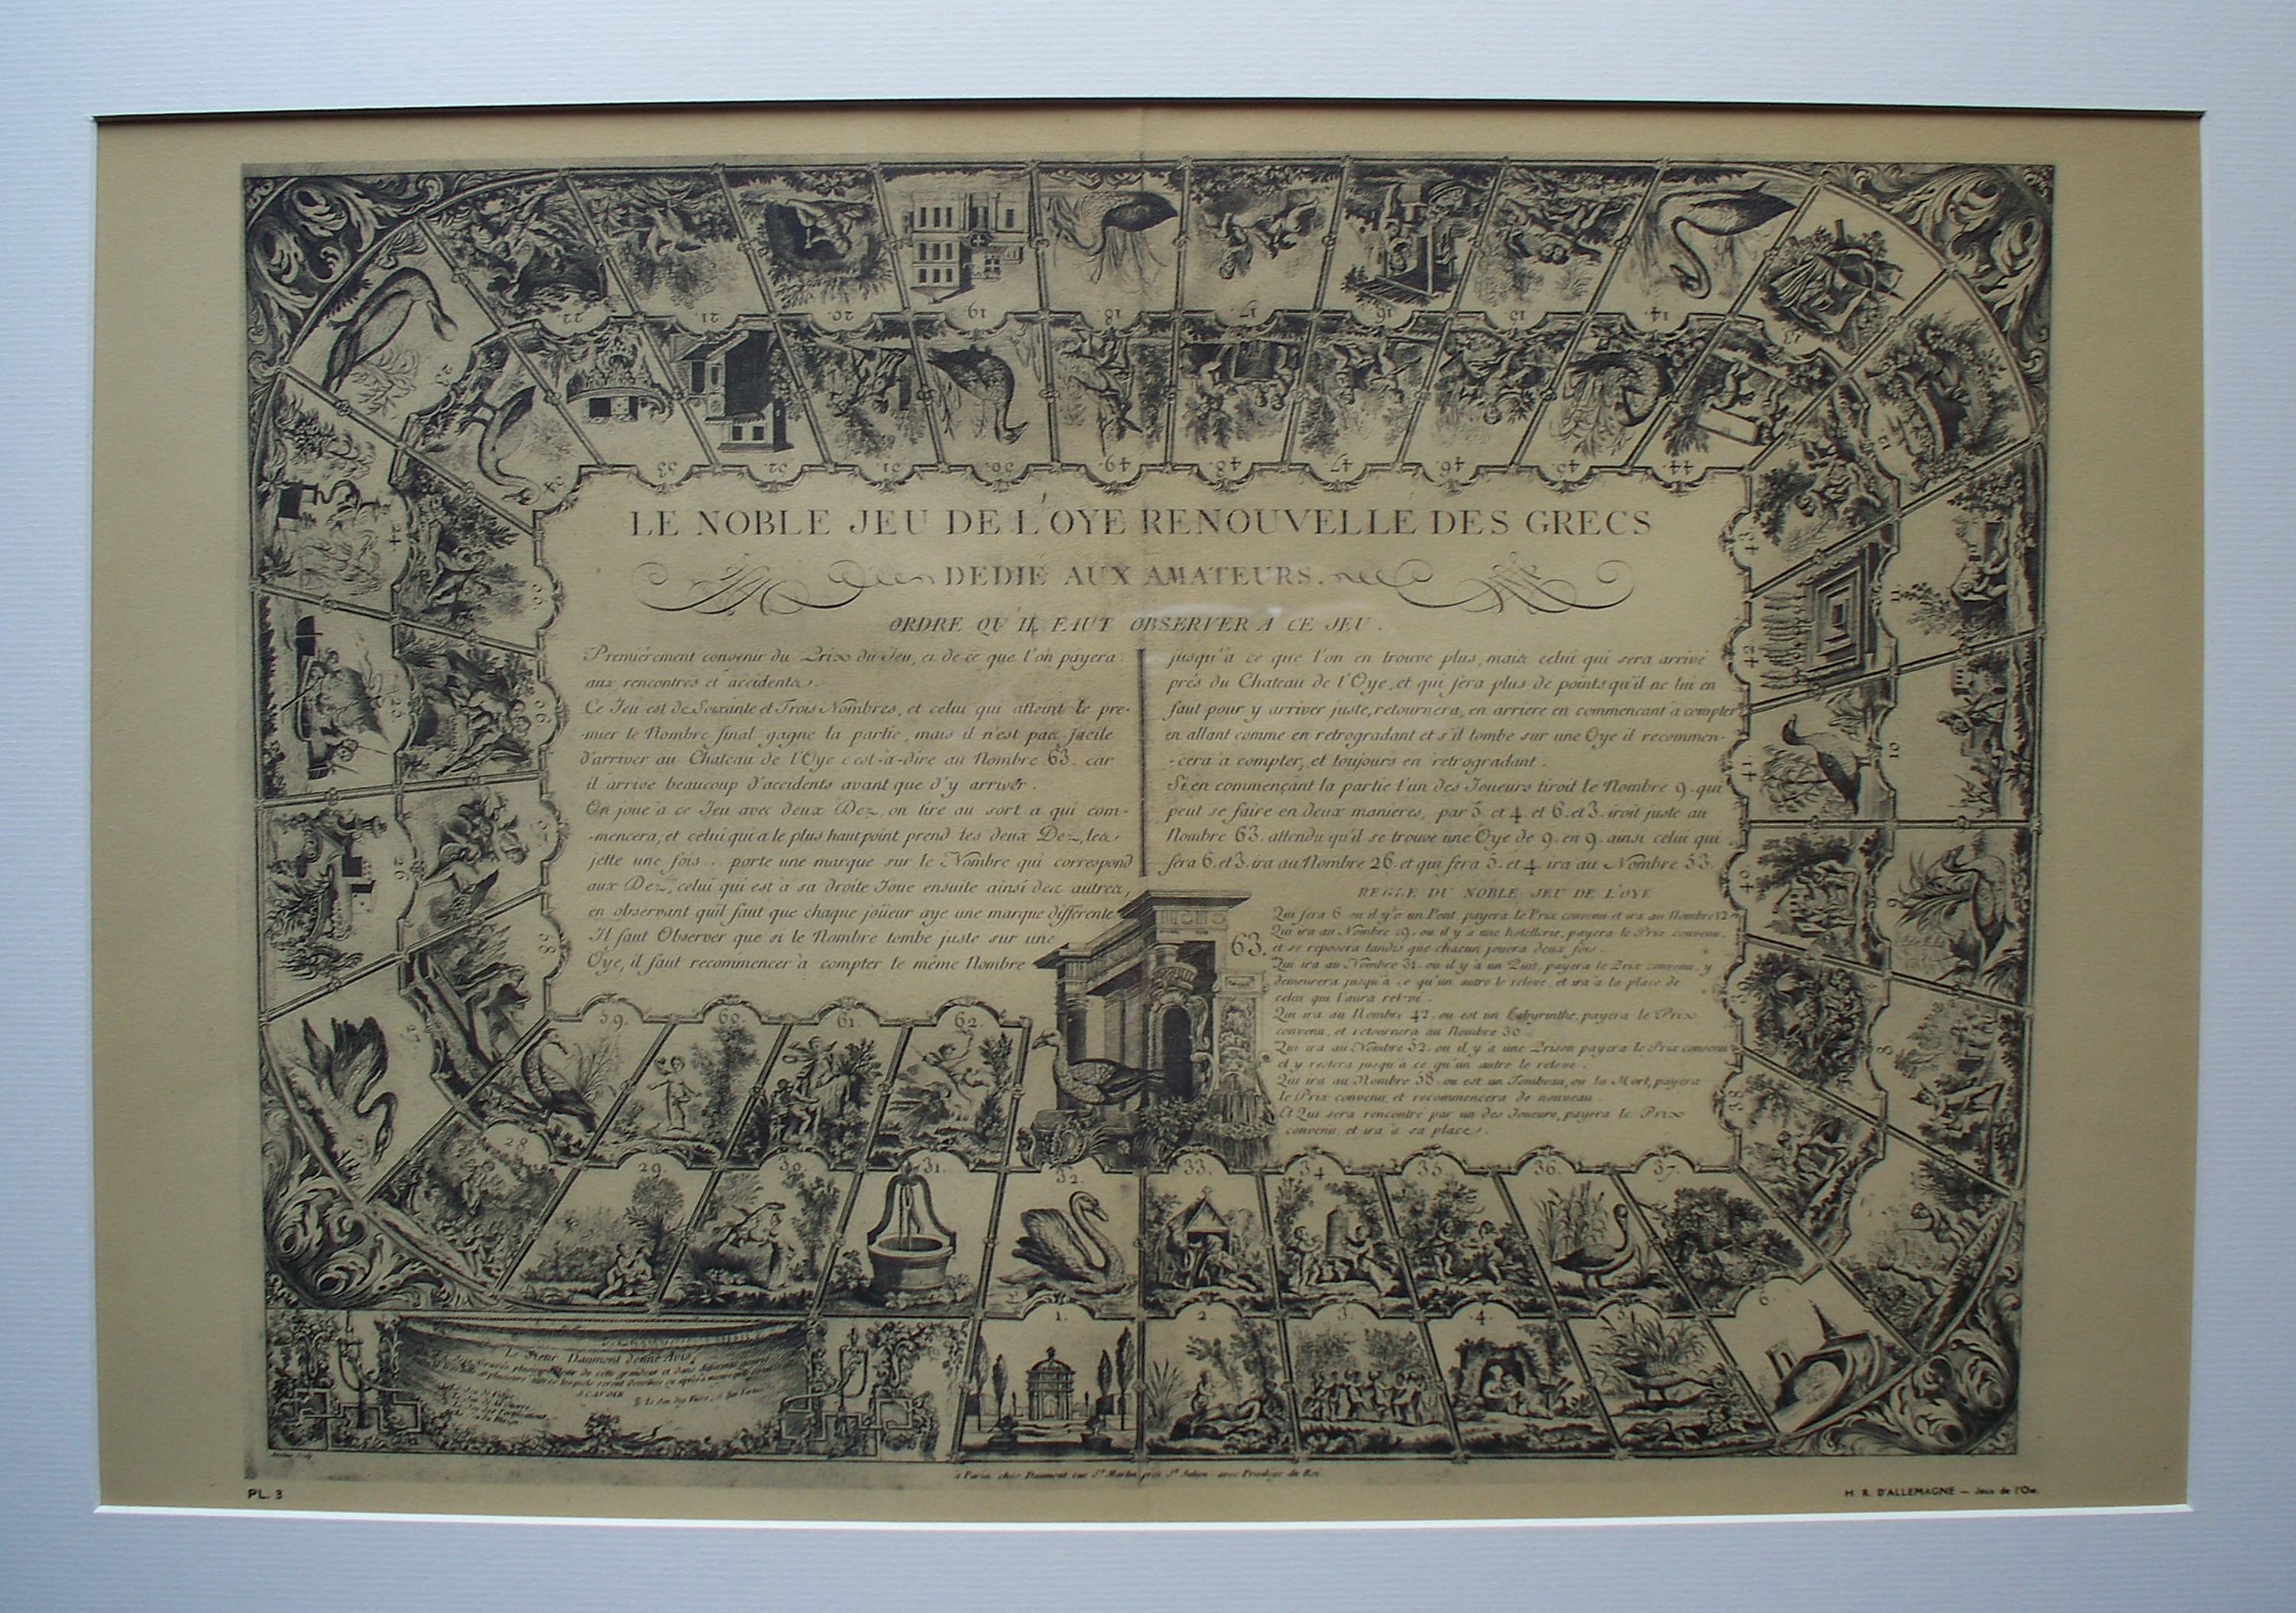 LE NOBLE JEU DE L'OYE RENOUVELLE DES GRECS
DEDIÉ AUX AMATEURS.
ORDRE QU'IL FAUT OBSERVER A CE JEU.
Premiérement convenir du Prix du Jeu, et de ce que l'on payera
aux rencontres et accidents.
Ce Jeu est de Soixante et Trois Nombres, et celui qui atteint le pre-
-mier le Nombre final gagne la partie, mais il n'est pas facile
d'arriver au Chateau de l'Oye c'est-à-dire au Nombre 63. car
il arrive beaucoup d'accidents avant que d'y arriver.
On joue à ce Jeu avec deux Dez, on tire au sort a qui com-
-mencera, et celui qui a le plus haut point prend les deux Dez, les
jette une fois... porte une marque sur le Nombre qui correspond
aux Dez, celui qui est à sa droite Joue ensuite ainsi des autres,
en observant qu'il faut que chaque joüeur aye une marque différente
Il faut Observer que si le Nombre tombe juste sur une
Oye, il faut recommencer à compter le même Nombre
jusqu'à ce que l'on en trouve plus, mais celui qui sera arrivé
prés du Chateau de l'Oye, et qui fera plus de points qu'il ne lui en
faut pour y arriver juste, retournera, en arriere en commencant a compter
en allant comme en retrogradant et s'il tombe sur une Oye il recommen-
-cera à compter, et toujours en retrogradant.
Si en commençant la partie l'un des Joueurs tiroit le Nombre 9. qui
peut se faire en deux manieres, par 5. et 4. et 6. et 3. iroit juste au
Nombre 63. attendu qu'il se trouve une Oye de 9. en 9. ainsi celui qui
fera 6. et 3. ira au Nombre 26. et qui fera 5. et 4. ira au Nombre 53.
REGLE DU NOBLE JEU DE L'OYE
Qui fera 6. ou il y'a un Pont, payera le Prix convenu et ira au Nombre 12
Qui ira au Nombre 19. ou il y'a une hotellerie, payera le Prix convenu,
et se reposera tandis que chacun jouera deux fois.
Qui ira au Nombre 31. ou il y'a un Puit, payera le Prix convenu, y
demeurera jusqu'à ce qu'un autre le releve, et ira a la place de
celui qui l'aura relevé.
Qui ira au Nombre 42. ou est un Labyrinthe, payera le Prix
convenu, et retournera au Nombre 30
Qui ira au Nombre 52. ou il y'a une Prison payera le Prix convenu
et y restera jusqu'à ce qu'un autre le releve.
Qui ira au Nombre 58. ou est un Tombeau, ou la Mort, payera
le Prix convenu, et recommencera de nouveau.
Et Qui sera rencontré par un des Joueurs, payera le Prix
convenu, et ira à sa place.
63.
1.
2.
3.
4.
5.
6.
8
9
10
11
12
13
14
15
16
17
18
19
20
21
22
23
24
25
26
27
28
29.
30.
31.
32.
33.
34
35.
36.
37.
38
39
40
41
42
43
44
45
46
47
48
49
50
51
52
53
54
55
56
57
58
59.
60.
61.
62.
Le Sieur Daumont donne Avis
a Paris chés Daumont rue St. Martin pres St. Julien avec Privilege du Roi
PL. 3
H. R. D'ALLEMAGNE — Jeux de l'Oie.